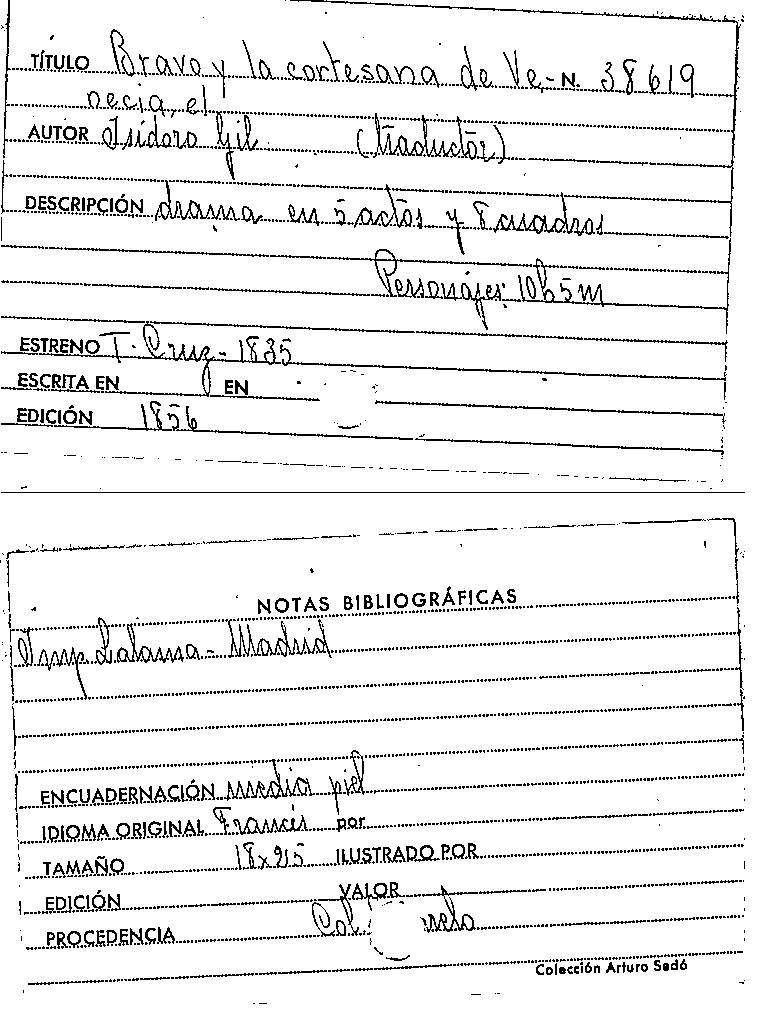 TÍTULO Bravo y la cortesana de Ve,- N. 38619
necia, el
AUTOR Isidoro Gil (traductor)
DESCRIPCIÓN drama en 5 actos y 8 cuadros
Personajes: 10h 5m
ESTRENO T. Cruz - 1835
ESCRITA EN EN
EDICIÓN 1856
NOTAS BIBLIOGRÁFICAS
Imp Lalama - Madrid
ENCUADERNACIÓN media piel
IDIOMA ORIGINAL Francés por
TAMAÑO 18x215 ILUSTRADO POR
EDICIÓN VALOR
PROCEDENCIA Col.
Colección Arturo Sedó